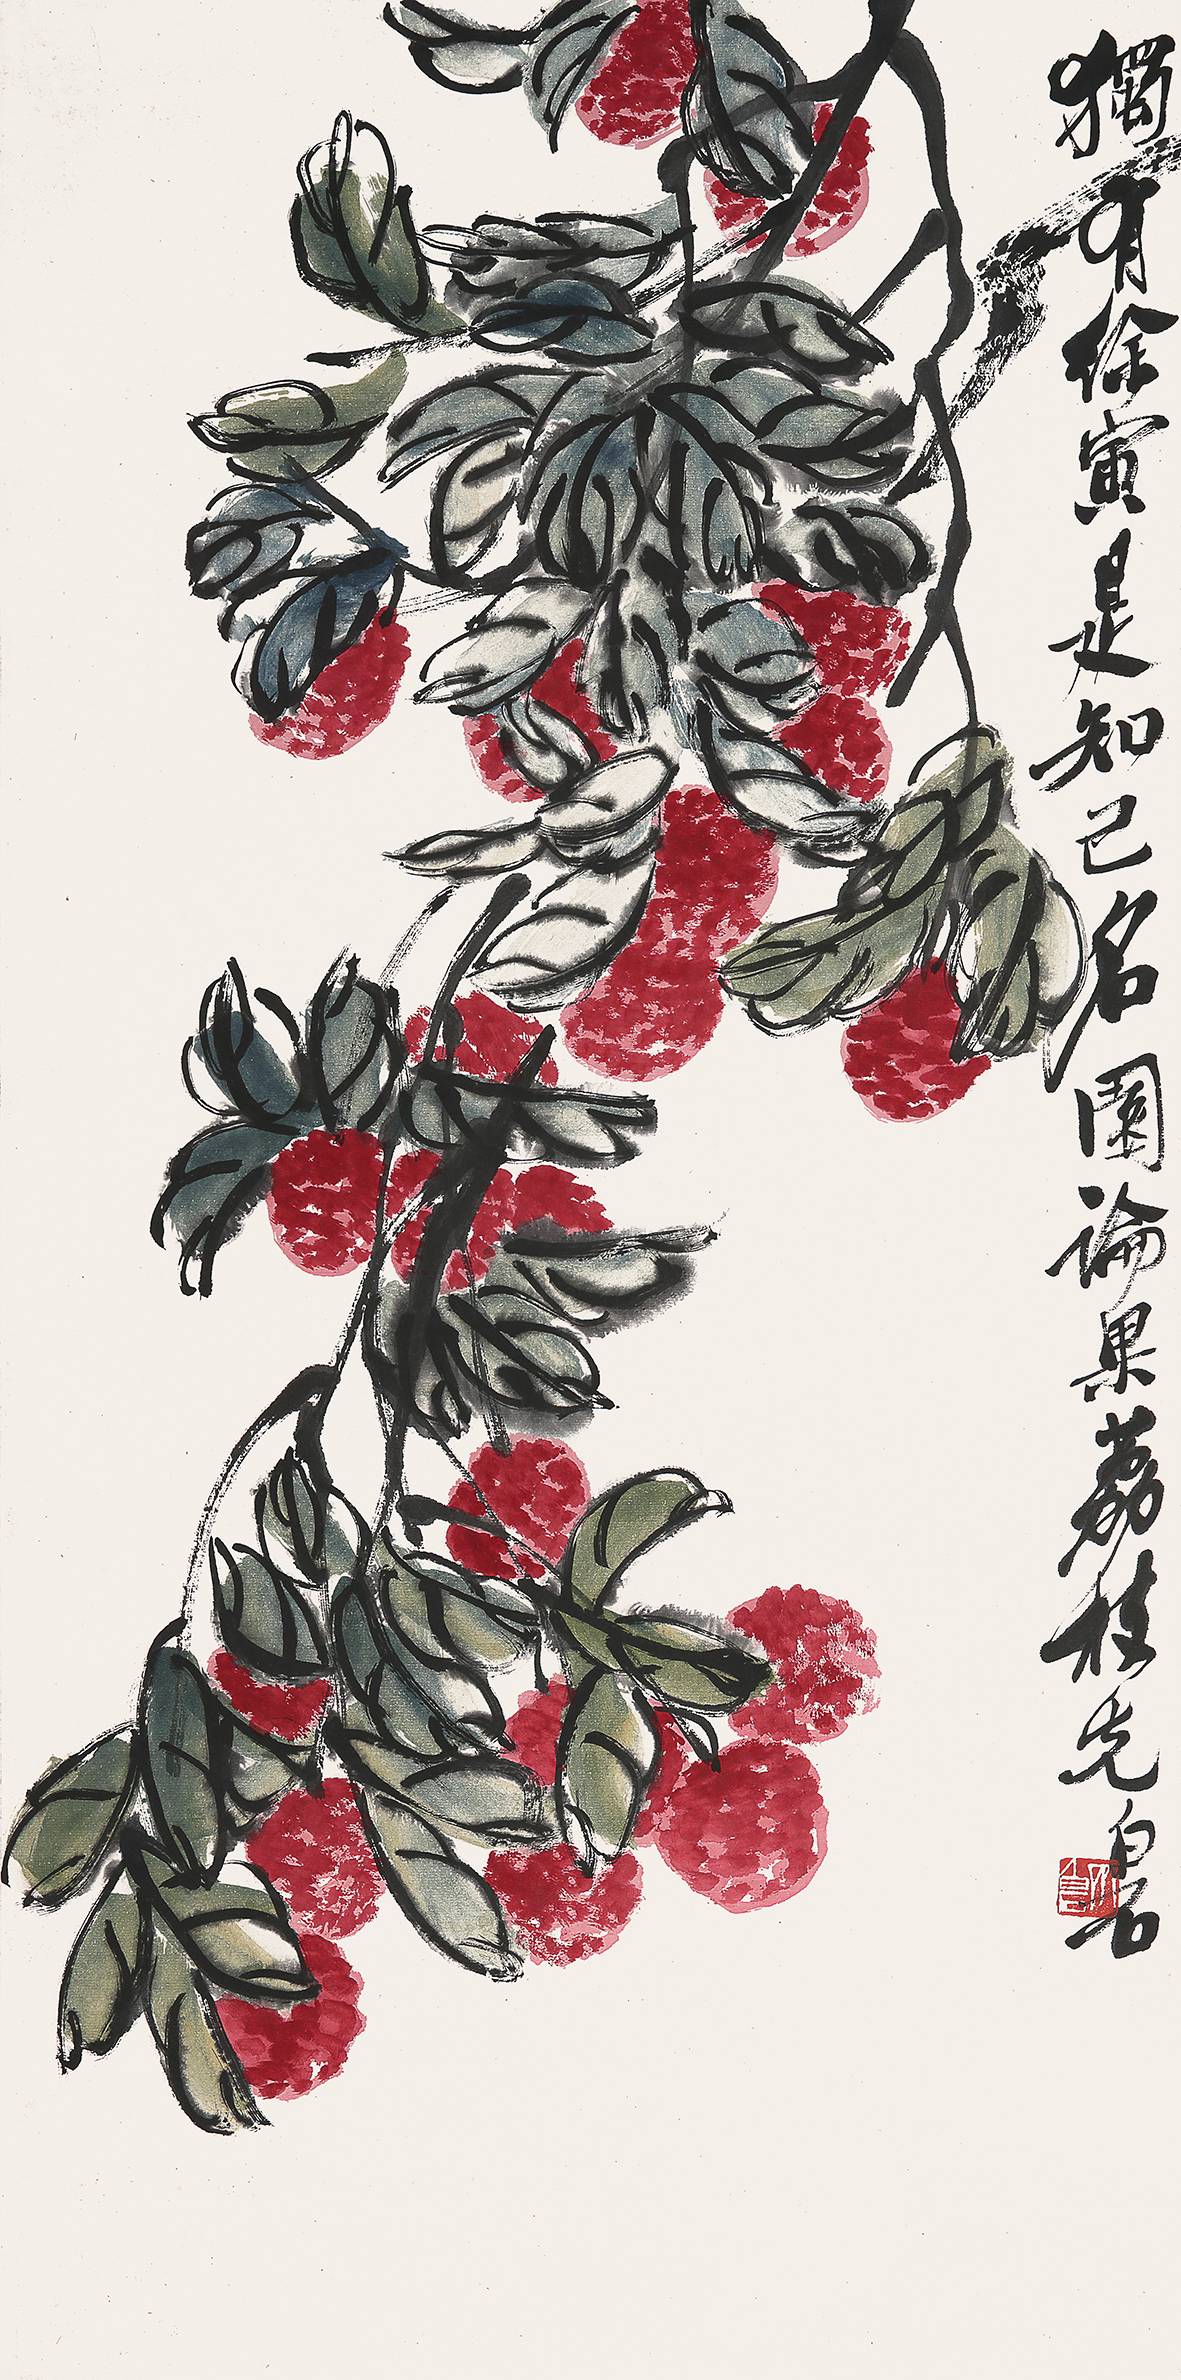 獨有徐寅是知己名園論果荔枝先白石